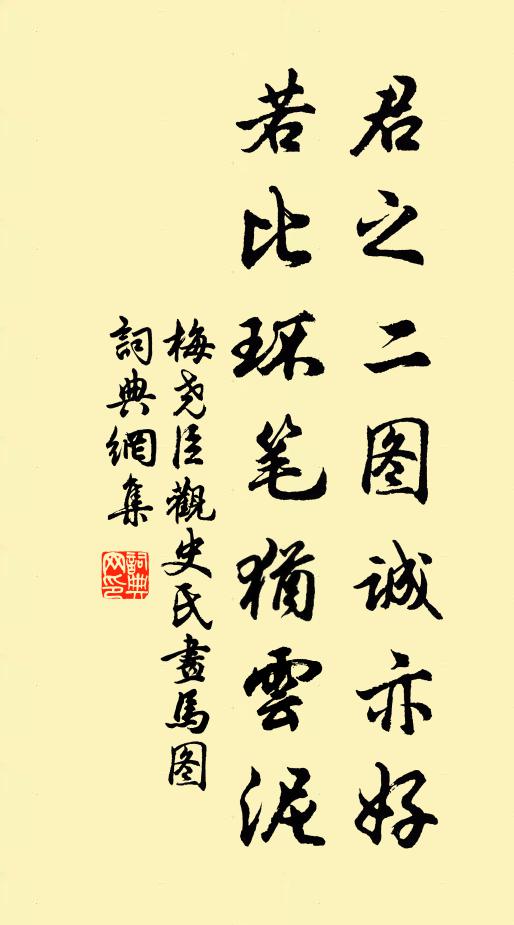 君之二图诚亦好
若比环笔犹雲泥
梅尧臣觀史氏畫馬图
詞典網集
詞典網印